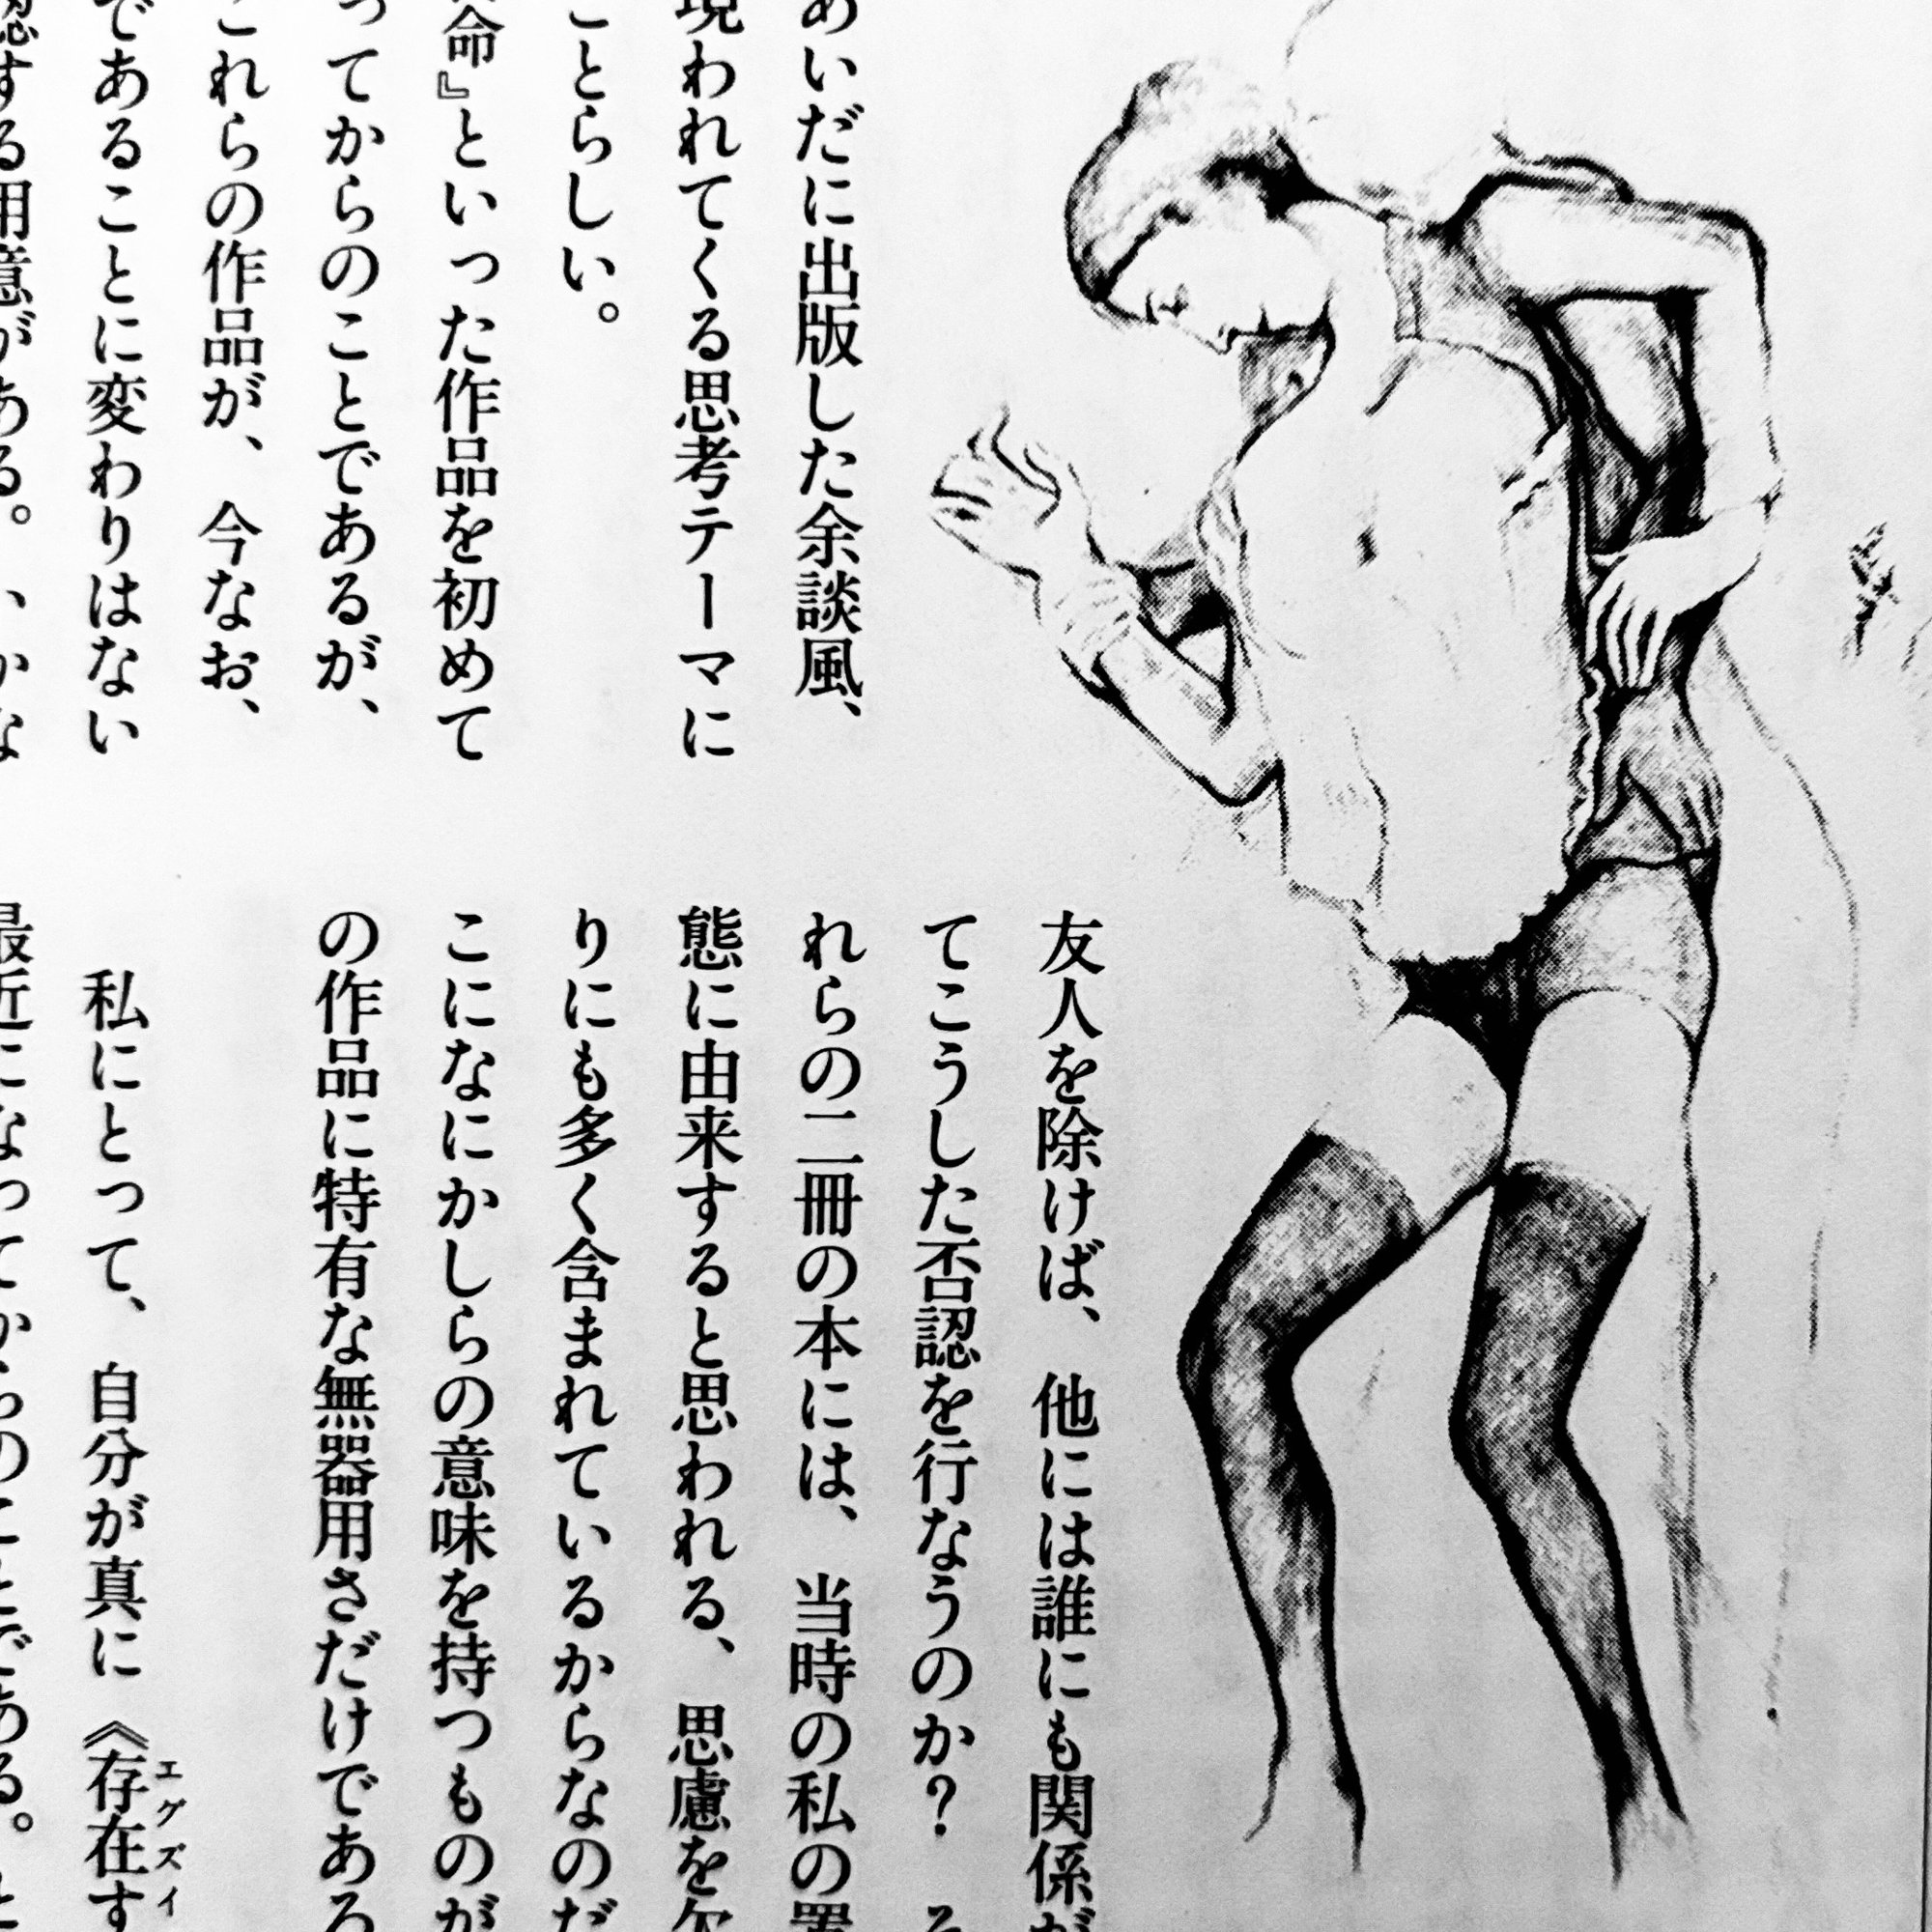 あいだに出版した余談風、
現われてくる思考テーマに
ことらしい。
命』といった作品を初めて
ってからのことであるが、
これらの作品が、今なお、
であることに変わりはない
認する用意がある。
友人を除けば、他には誰にも関係が
てこうした否認を行なうのか？ そ
れらの二冊の本には、当時の私の置
態に由来すると思われる、思慮を欠
りにも多く含まれているからなのだ
こになにかしらの意味を持つものが
の作品に特有な無器用さだけである
私にとって、自分が真に《存在す
エグズイ
最近になってからのことである。